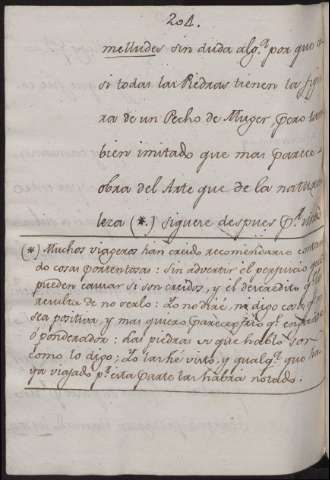 204.
melludes sin duda algª. por que ca
si todas las Piedras tienen la figu
ra de un Pecho de Muger, pero tan
bien imitado que mas parece
obra del Arte que de la natura
leza (*.) siguese despues pª.
(*) Muchos viageros han creido recomendarse contan
do cosas portentosas: sin advertir el perjuicio que
pueden causar si son creidos, y el descredito qº. les
resulta de no serlo: Yo no haré, ni digo cosa qº. no
sea positiva, y mas quiero parecer frio qº. entusiasta
ó ponderador: las piedras de que hablo son
como lo digo; Yo las hé visto, y qualqª. que ha
ya viajado pº. esta parte las habrá notado.